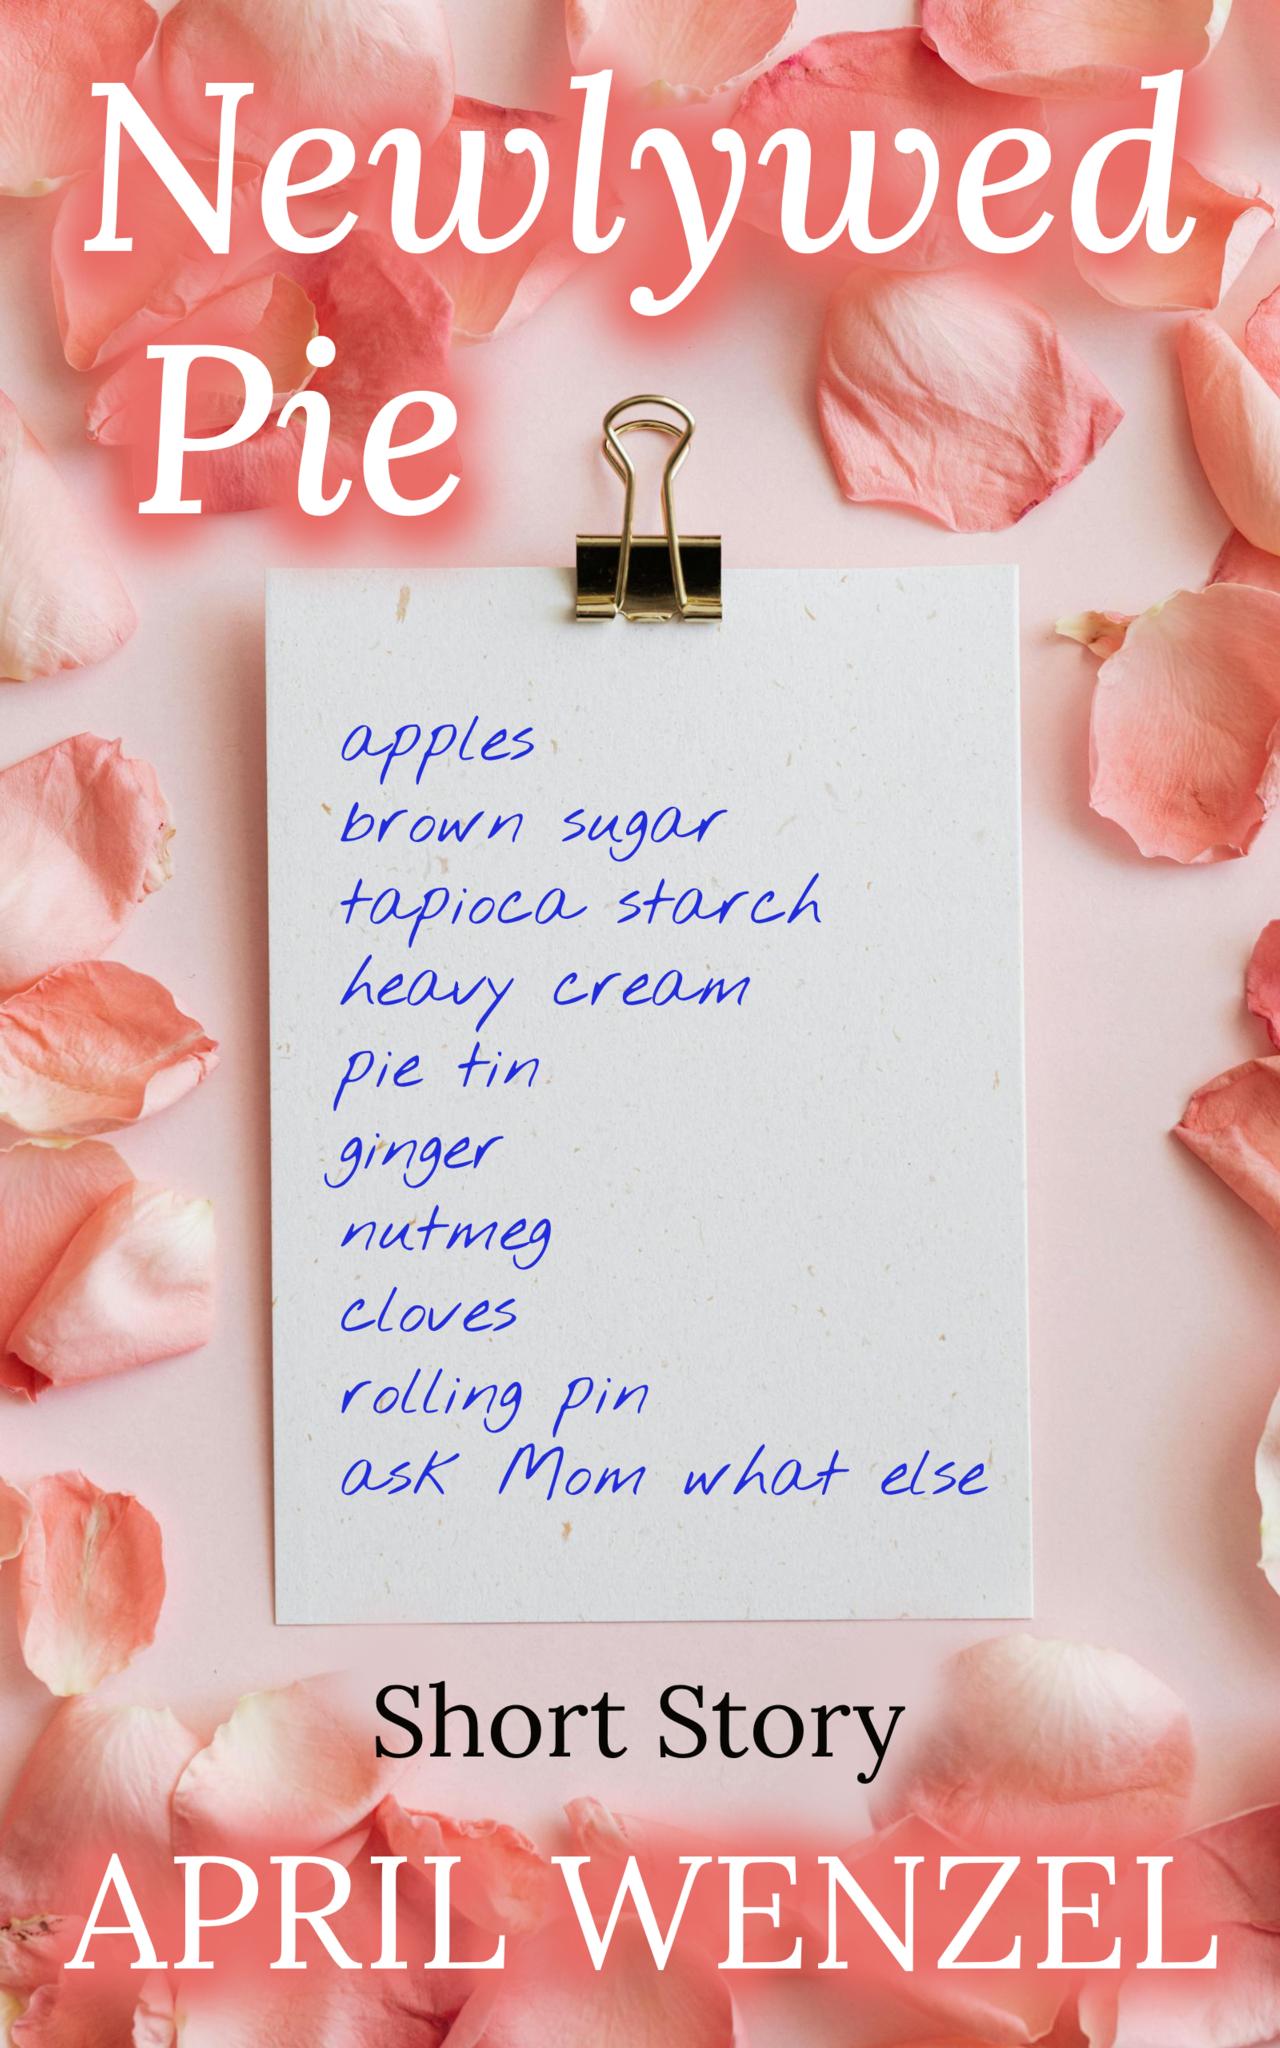 Newlywed
Pie
apples
brown sugar
tapioca starch
heavy cream
pie tin
ginger
nutmeg
cloves
rolling pin
ask Mom what else
Short Story
APRIL WENZEL